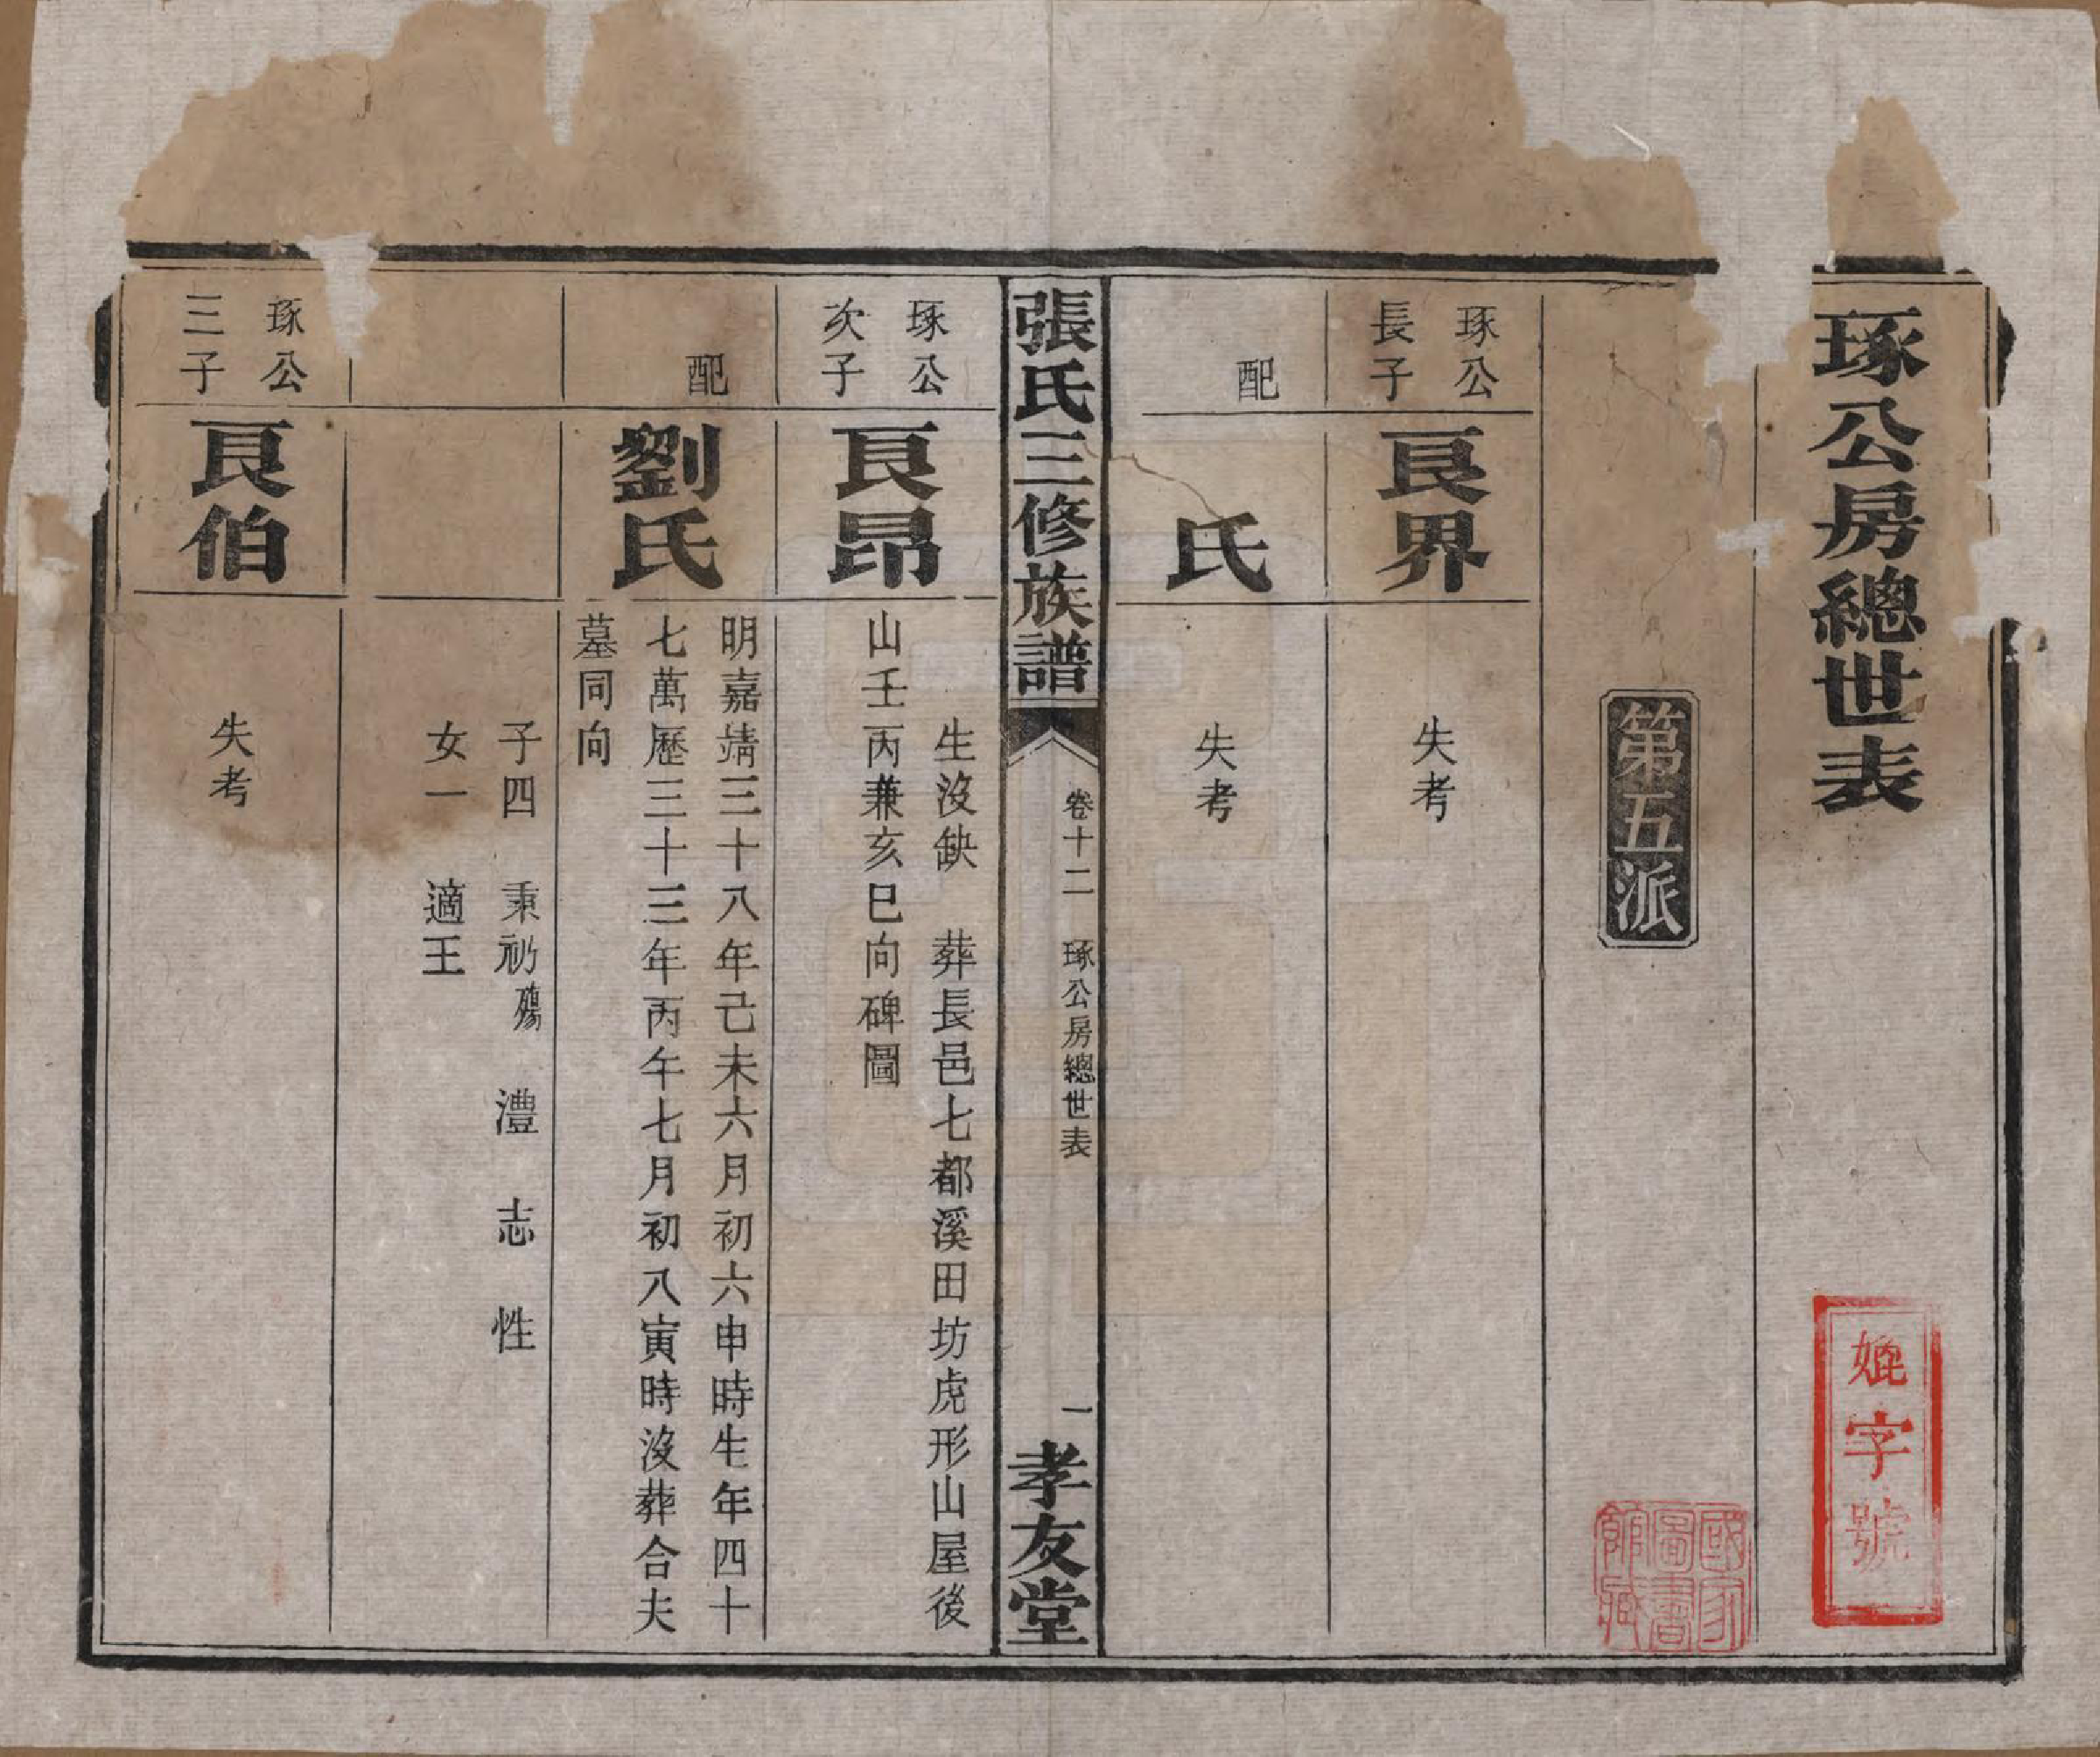 琢公房總世表
第五派
琢公
長子
良界
失考
配
氏
失考
張氏三修族譜
卷十二 琢公房總世表
一
孝友堂
琢公
次子
良昂
生沒缺 葬長邑七都溪田坊虎形山屋後
山壬丙兼亥巳向碑圖
配
劉氏
明嘉靖三十八年己未六月初六申時生年四十
七萬歷三十三年丙午七月初八寅時沒葬合夫
墓同向
子四 秉礽殤 澧 志 性
女一 適王
琢公
三子
良伯
失考
字號
國家
圖書
館藏